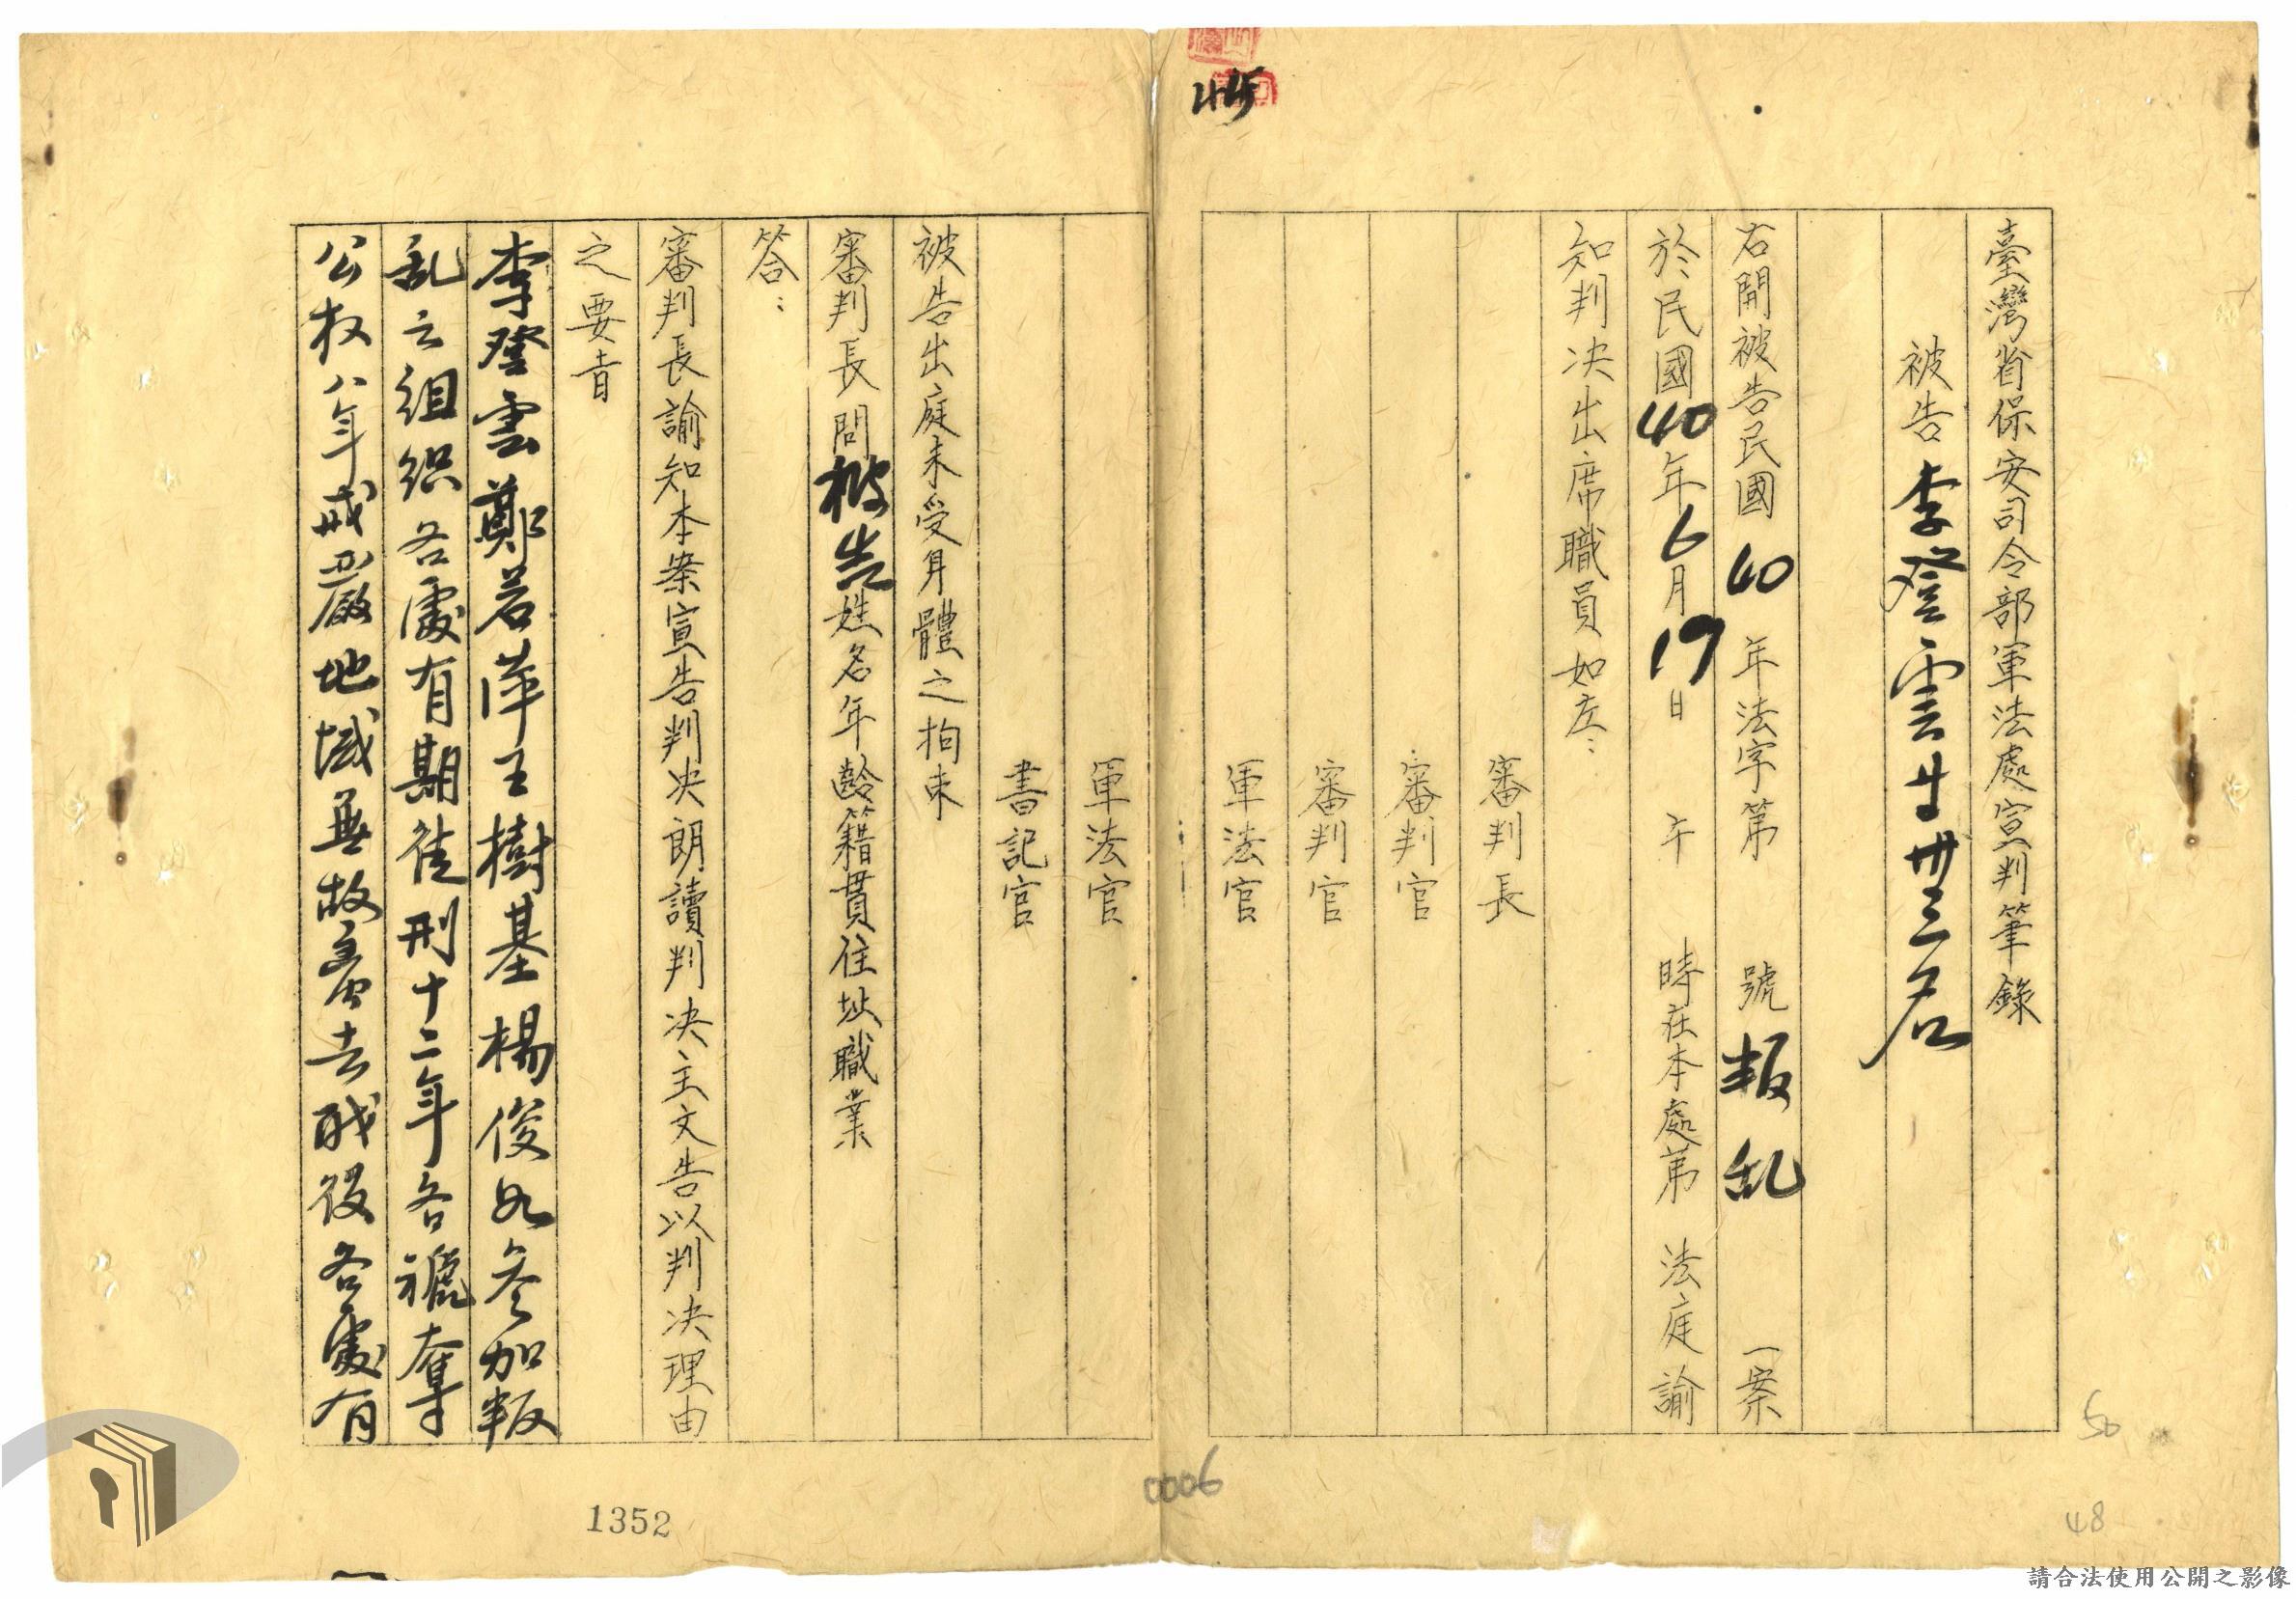 臺灣省保安司令部軍法處宣判筆錄
被告李登雲廿卅三名
右開被告民國40年法字第 號叛乱 一案
於民國40年6月19日 午 時在本處第 法庭諭
知判决出席職員如左：
審判長
審判官
審判官
軍法官
軍法官
書記官
被告出庭未受身體之拘束
審判長問被告姓名年齡籍貫住址職業
答：
審判長諭知本案宣告判决朗讀判决主文告以判决理由
之要旨
李登雲鄭若萍王樹基楊俊如參加叛
乱之組织各處有期徒刑十二年各褫奪
公权八年戒嚴地域無故离去職役各處有
0006
1352
50
48
請合法使用公開之影像